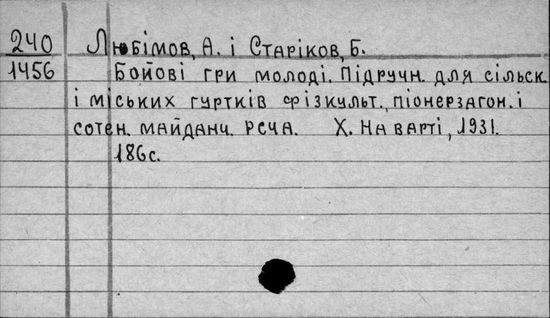 240 Любімов, А. і Старіков, Б.
1456 Бойові гри молоді. Підручн. для сільск.
і міських гуртків фізкульт., піонерзагон. і
сотен. майданч. РСЧА. Х. На варті, 1931.
186с.